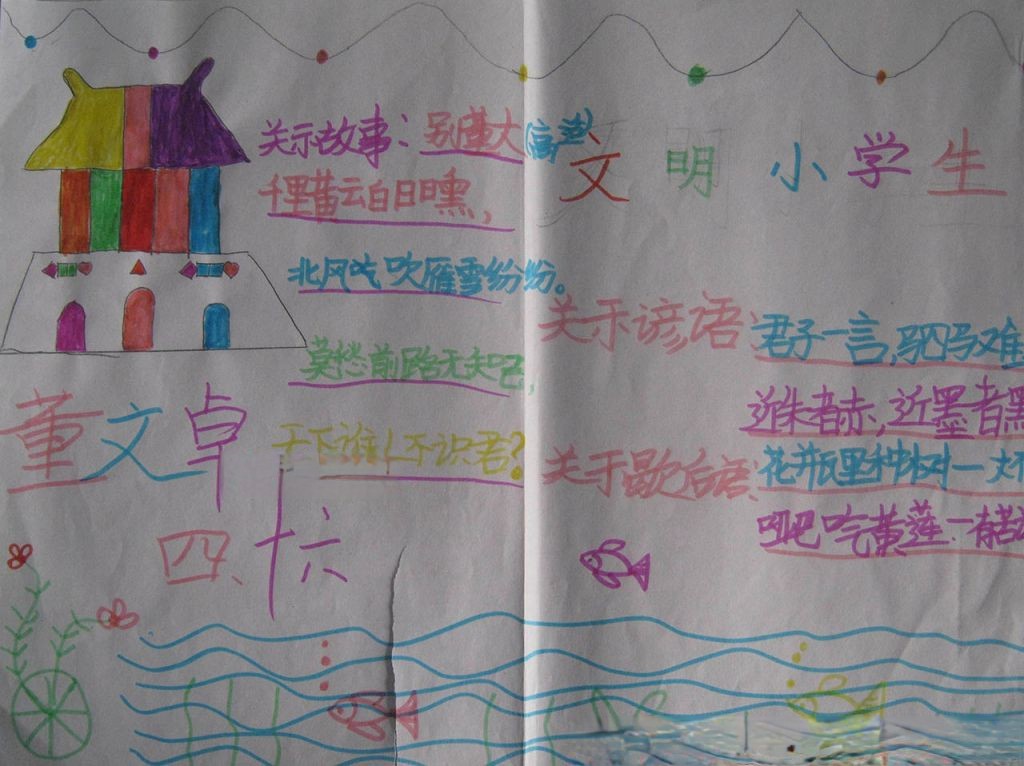 关示故事：别董大(高適)
千里黄云白日曛，
北风吹雁雪纷纷。
莫愁前路无知己，
天下谁人不识君？
董文卓
四、十六
文明小学生
关示谚语：君子一言，驷马难
近朱者赤，近墨者黑
关于歇后语：花瓶里种树一
哑巴吃黄莲一有苦